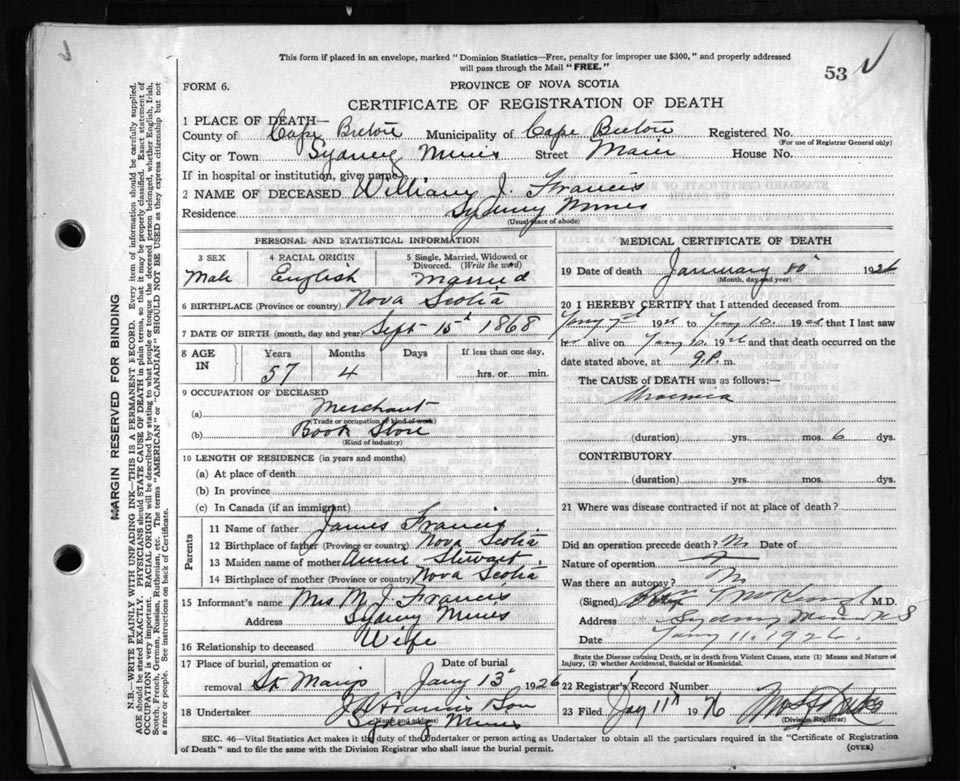 This form if placed in an envelope, marked "Dominion Statistics—Free, penalty for improper use $300," and properly addressed
will pass through the Mail "FREE."
53
FORM 6.
PROVINCE OF NOVA SCOTIA
CERTIFICATE OF REGISTRATION OF DEATH
1 PLACE OF DEATH—
County of Cape Breton Municipality of Cape Breton Registered No.
(For use of Registrar General only)
City or Town Sydney Mines Street Main House No.
If in hospital or institution, give name
2 NAME OF DECEASED William J. Francis
Residence Sydney Mines
(Usual place of abode)
PERSONAL AND STATISTICAL INFORMATION
3 SEX 4 RACIAL ORIGIN 5 Single, Married, Widowed or Divorced. (Write the word)
Male English Married
6 BIRTHPLACE (Province or country) Nova Scotia
7 DATE OF BIRTH (month, day and year) Sept 15th 1868
8 AGE IN Years Months Days If less than one day,
57 4 hrs. or min.
9 OCCUPATION OF DECEASED
(a) Merchant
(Trade or occupation or kind of work)
(b) Book Store
(Kind of industry)
10 LENGTH OF RESIDENCE (in years and months)
(a) At place of death
(b) In province
(c) In Canada (if an immigrant)
Parents
11 Name of father James Francis
12 Birthplace of father (Province or country) Nova Scotia
13 Maiden name of mother Annie Stewart
14 Birthplace of mother (Province or country) Nova Scotia
15 Informant's name Mrs M. J. Francis
Address Sydney Mines
16 Relationship to deceased Wife
17 Place of burial, cremation or removal St Marys Date of burial Jany 13th 1926
18 Undertaker J A Francis Son
(Name and address)
Sydney Mines
MEDICAL CERTIFICATE OF DEATH
19 Date of death January 10th 1926
(Month, day and year)
20 I HEREBY CERTIFY that I attended deceased from
Jany 192 to Jany 10 192 that I last saw
alive on Jany 192 and that death occurred on the
date stated above, at 9.P.m.
The CAUSE OF DEATH was as follows:—
Uraemia
(duration) yrs. mos. 6 dys.
CONTRIBUTORY
(duration) yrs. mos. dys.
21 Where was disease contracted if not at place of death?
Did an operation precede death? No Date of
Nature of operation
Was there an autopsy? No
(Signed) M.D.
Address Sydney Mines N S
Date Jany 11. 1926.
State the Disease causing Death, or in death from Violent Causes, state (1) Means and Nature of
Injury, (2) whether Accidental, Suicidal or Homicidal.
22 Registrar's Record Number
23 Filed Jany 11th 1926
(Division Registrar)
SEC. 46—Vital Statistics Act makes it the duty of the Undertaker or person acting as Undertaker to obtain all the particulars required in the "Certificate of Registration
of Death" and to file the same with the Division Registrar who shall issue the burial permit.
(OVER)
MARGIN RESERVED FOR BINDING
N.B.—WRITE PLAINLY WITH UNFADING INK—THIS IS A PERMANENT RECORD. Every item of information should be carefully supplied.
AGE should be stated EXACTLY. PHYSICIANS should STATE CAUSE OF DEATH in plain terms, so that it may be properly classified. Exact statement of
OCCUPATION is very important. RACIAL ORIGIN will be described by stating to what people or tongue the deceased person belonged, whether English, Irish,
Scotch, French, German, Russian, Ruthenian, etc. The terms "AMERICAN" or "CANADIAN" SHOULD NOT BE USED as they express citizenship but not
a race or people. See instructions on back of Certificate.